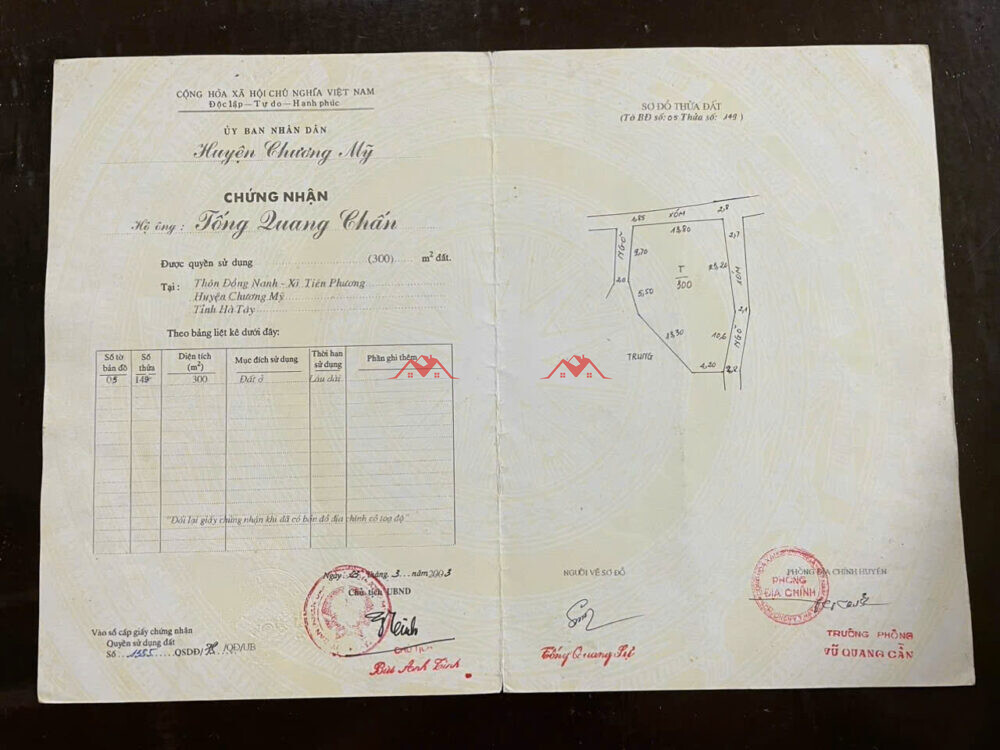 CỘNG HÒA XÃ HỘI CHỦ NGHĨA VIỆT NAM
Độc lập – Tự do – Hạnh phúc
ỦY BAN NHÂN DÂN
Huyện Chương Mỹ
CHỨNG NHẬN
Hộ ông: Tống Quang Chấn
Được quyền sử dụng (300) m² đất.
Tại: Thôn Đồng Nanh - Xã Tiên Phương
Huyện Chương Mỹ
Tỉnh Hà Tây
Theo bảng liệt kê dưới đây:
Số tờ bản đồ | Số thửa | Diện tích (m²) | Mục đích sử dụng | Thời hạn sử dụng | Phần ghi thêm
05 | 149 | 300 | Đất ở | Lâu dài
"Đổi lại giấy chứng nhận khi đã có bản đồ địa chính có toạ độ"
tháng 3 năm 2003
Chủ tịch UBND
Vào sổ cấp giấy chứng nhận
Quyền sử dụng đất
Số 1385 QSDĐ/ /QĐ/UB
SƠ ĐỒ THỬA ĐẤT
(Tờ BĐ số: 05 Thửa số: 149)
1,85 XÓM 2,8
13,80
NGÕ 9,70 2,7
T 300
23,20 XÓM
2,0 5,50
2,1
13,30 10,6 NGÕ
TRUNG
4,20 2,2
NGƯỜI VẼ SƠ ĐỒ
Tống Quang Sự
PHÒNG ĐỊA CHÍNH HUYỆN
PHÒNG
ĐỊA CHÍNH
TRƯỞNG PHÒNG
VŨ QUANG CẦN